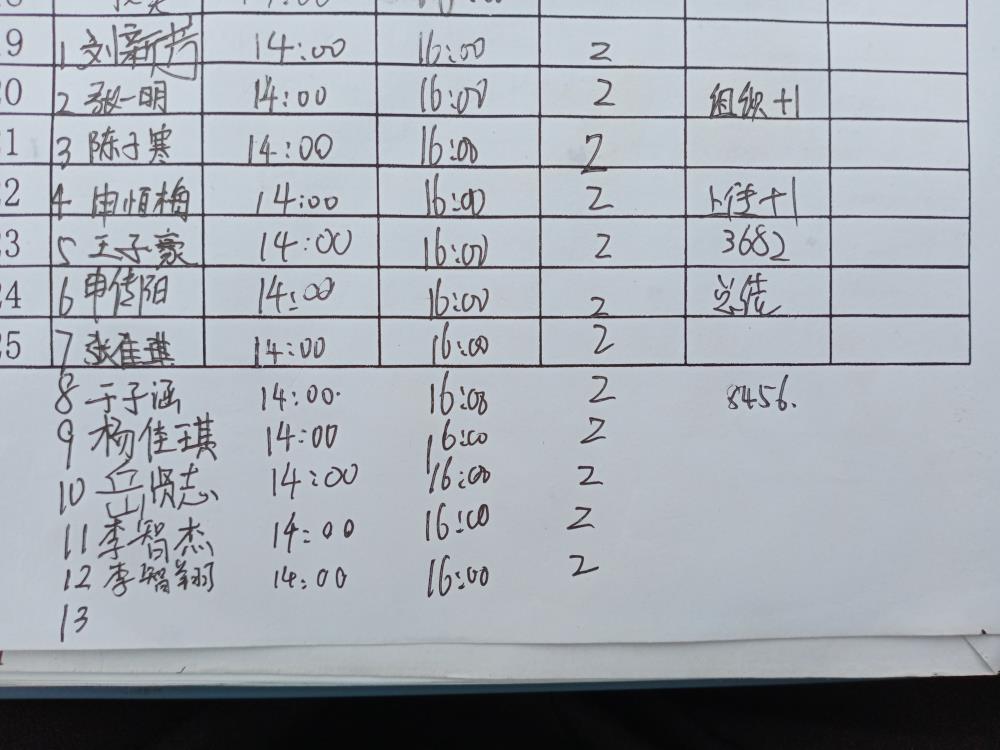 19 1 刘新芳 14:00 16:00 2
20 2 张一明 14:00 16:00 2 组织+1
21 3 陈子寒 14:00 16:00 2
22 4 申恒梅 14:00 16:00 2 +1
23 5 王子豪 14:00 16:00 2 3682
24 6 申传阳 14:00 16:00 2 总结
25 7 张佳琪 14:00 16:00 2
8 于子涵 14:00. 16:00 2 8456.
9 杨佳琪 14:00 16:00 2
10 岳贤志 14:00 16:00 2
11 李智杰 14:00 16:00 2
12 李智翔 14:00 16:00 2
13